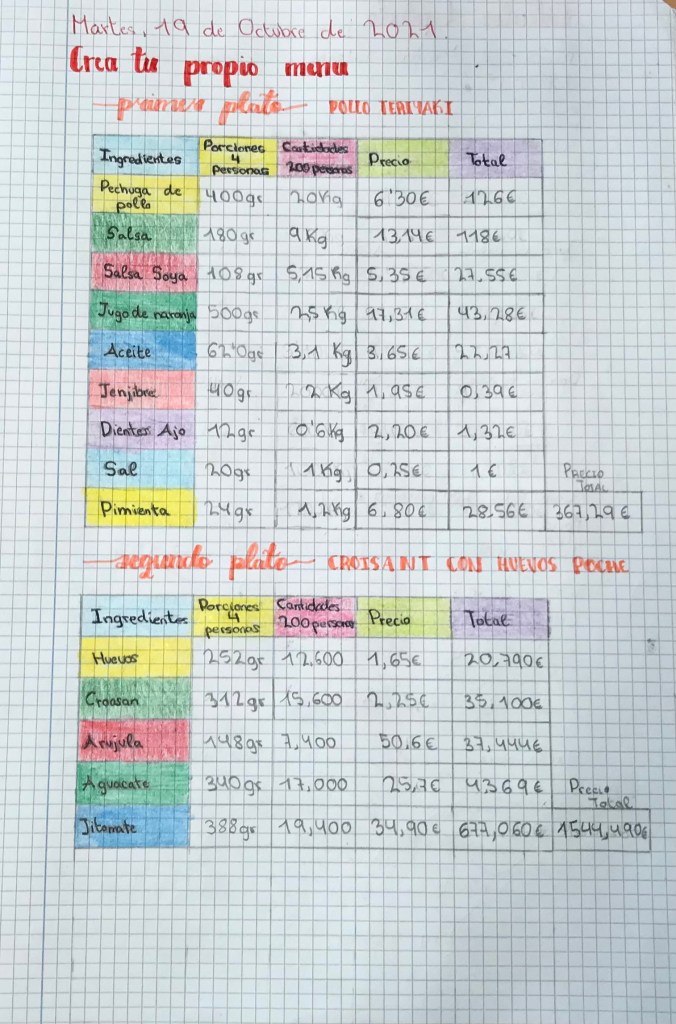 Martes, 19 de Octubre de 2021.
Crea tu propio menu
primer plato POLLO TERIYAKI
Ingredientes Porciones 4 personas Cantidades 200 personas Precio Total
Pechuga de pollo 400gr 20Kg 6'30€ 126€
Salsa 180gr 9Kg 13,14€ 118€
Salsa Soya 108gr 5,15Kg 5,35€ 27,55€
Jugo de naranja 500gr 25Kg 17,31€ 43,28€
Aceite 62'0gr 3,1 Kg 3,65€ 22,27
Jenjibre 40gr 2Kg 1,95€ 0,39€
Dientes Ajo 12gr 0'6Kg 2,20€ 1,32€
Sal 20gr 1Kg 0,25€ 1€ Precio Total
Pimienta 24gr 1,2Kg 6,80€ 28.56€ 367,29€
segundo plato CROISANT CON HUEVOS POCHE
Ingredientes Porciones 4 personas Cantidades 200 personas Precio Total
Huevos 252gr 12,600 1,65€ 20,790€
Croasan 312gr 15,600 2,25€ 35,100€
Arujula 148gr 7,400 50,6€ 37,444€
Aguacate 340gr 17,000 25,7€ 4369€ Precio Total
Jitomate 388gr 19,400 34,90€ 677,060€ 1544,490€